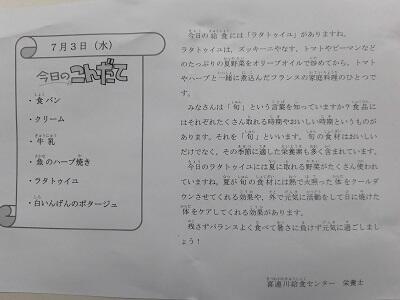 7月3日（水）
今日のこんだて
・食パン
・クリーム
・牛乳
・魚のハーブ焼き
・ラタトゥイユ
・白いんげんのポタージュ
今日の給食には「ラタトゥイユ」がありますね。
ラタトゥイユは、ズッキーニやなす、トマトやピーマンなど
のたっぷりの夏野菜をオリーブオイルで炒めてから、トマト
やハーブと一緒に煮込んだフランスの家庭料理のひとつで
す。
みなさんは「旬」という言葉を知っていますか？食品に
はそれぞれたくさん取れる時期やおいしい時期というものが
あります。それを「旬」といいます。旬の食材はおいしい
だけでなく、その季節に適した栄養素も多く含まれています。
今日のラタトゥイユには夏に取れる野菜がたくさん使われ
ていますね。夏が旬の食材には熱で火照った体をクールダ
ウンさせてくれる効果や、外で元気に活動をして日に焼けた
体をケアしてくれる効果があります。
残さずバランスよく食べて暑さに負けず元気に過ごしまし
ょう！
喜連川給食センター　栄養士